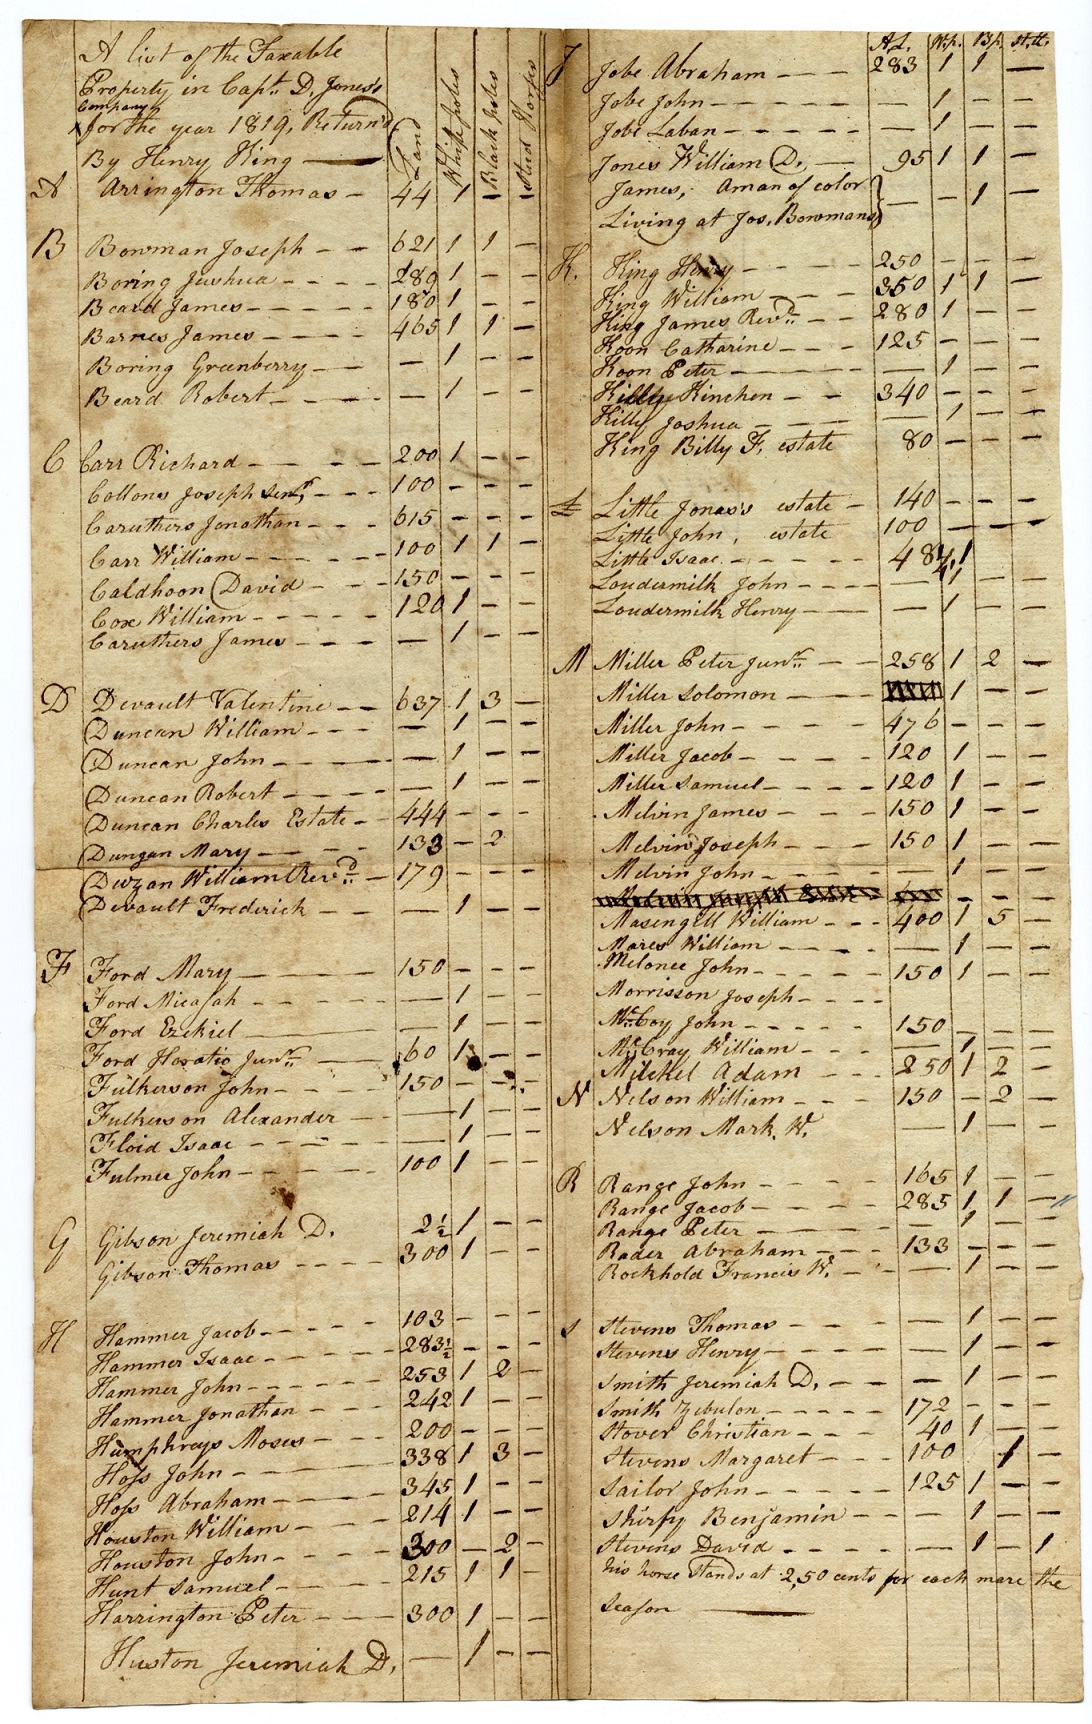 A list of the Taxable
Property in Capt. D. Jones's
Company
for the year 1819, Return'd
By Henry King —
Land
White poles
Black poles
Stud Horses
A Arrington Thomas — 44 1 – –
B Bowman Joseph – – 621 1 1 –
Boring Jushua – – – – 289 1 – –
Beard James – – – – – 180 1 – –
Barnes James – – – – 465 1 1 –
Boring Greenberry – – — 1 – –
Beard Robert – – – – – — 1 – –
C Carr Richard – – – – 200 1 – –
Collons Joseph Senr. – – – 100 – – –
Caruthers Jonathan – – – 615 – – –
Carr William – – – – – 100 1 1 –
Caldhoon David – – – 150 – – –
Cox William – – – – – 120 1 – –
Caruthers James – – – – — 1 – –
D Devault Valentine – – 637 1 3 –
Duncan William – – – — 1 – –
Duncan John – – – – – — 1 – –
Duncan Robert – – – – — 1 – –
Duncan Charles Estate – – 444 – – –
Dungan Mary – – – – 133 – 2
Duzan William Revd. – 179 – – –
Devault Frederick – – — 1 – –
F Ford Mary — — — 150 – – –
Ford Micajah – – – – — 1 – –
Ford Ezekiel — — 1 – –
Ford Horatio Junr. — 60 1 –
Fulkerson John – – – – 150 – – –
Fulkerson Alexander — — 1 – –
Floid Isaac – – – – – — 1 – –
Fulmer John – – – – – 100 1 – –
G Gibson Jeremiah D. 2½ 1 – –
Gibson Thomas – – – – 300 1 – –
H Hammer Jacob – – – – – 103 – – –
Hammer Isaac – – – – – 283½ – – –
Hammer John – – – – – 253 1 2 –
Hammer Jonathan – – – 242 1 – –
Humphreys Moses – – – 200 – – –
Hoss John – — — 338 1 3 –
Hoss Abraham – – – – 345 1 – –
Houston William – – – – 214 1 – –
Houston John – – – – – 300 – 2 –
Hunt Samuel – – – – 215 1 1 –
Harrington Peter – – – 300 1 – –
Huston Jeremiah D. — 1 – –
A.L. W.p. B.p. St.H.
J Jobe Abraham – – — 283 1 1 —
Jobe John – – – – – — 1 – –
Jobe Laban – – – – – — 1 – –
Jones William D. — 95 1 1 –
James, A man of color
Living at Jos. Bowmans } — – 1 –
K. King Henry – – – – – 250 – – –
King William – – – 350 1 1 –
King James Revd. – – 280 1 – –
Koon Catharine – – – 125 – – –
Koon Peter – – – – – — 1 – –
Killy Kinchen – – 340 – – –
Killy Joshua – – – – — 1 – –
King Billy F. estate 80 – – –
L Little Jonas's estate – 140 – – –
Little John, estate 100 – – –
Little Isaac – – – – – 484 1
Loudermilk John – – – – — 1 – –
Loudermilk Henry – – – — 1 – –
M Miller Peter Junr. – – 258 1 2 –
Miller Solomon – – – – 1 – –
Miller John – – – – – 476 – – –
Miller Jacob – – – – – 120 1 – –
Miller Samuel – – – – 120 1 – –
Melvin James – – – – 150 1 – –
Melvin Joseph – – – – 150 1 – –
Melvin John – – – – – — 1 – –
Masengill William – – – 400 1 5 –
Mares William – – – – — 1 – –
Melonee John – – – – – 150 1 – –
Morrisson Joseph – – – –
McCoy John – – – – – 150 – – –
McCray William – – – — 1 – –
Mickel Adam – – – 250 1 2 –
N Nelson William – – – 150 – 2 –
Nelson Mark. W. — 1 – –
R Range John – – – – 165 1 – –
Range Jacob – – – – – 285 1 1 –
Range Peter — — 1 – –
Rader Abraham – – – 133 – – –
Rockhold Francis W. – – — 1 – –
S Stevens Thomas – – – – — 1 – –
Stevens Henry – – – – — 1 – –
Smith Jeremiah D. – – — 1 – –
Smith Zebulon – – – – – 172 – – –
Stover Christian – – – 40 1 – –
Stevens Margaret – – – 100 1 –
Sailor John – – – – – 125 1 – –
Shirfy Benjamin – – – — 1 – –
Stevens David – – – – — 1 – 1
his horse Stands at 2,50 cents for each mare the
Season —